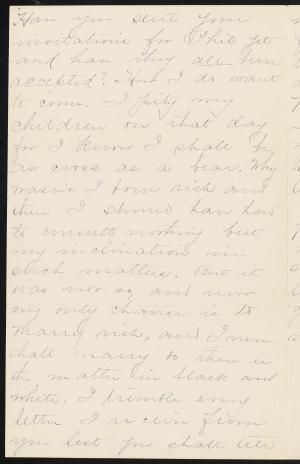 Have you sent your
invitations for Phil yet
and have they all been
accepted? How I do want
to come. I pity my
children on that day
for I know I shall be
as cross as a bear. Why
wasn't I born rich and
then I should have had
to consult nothing but
my inclination in
such matters. But it
was not so and now
my only chance is to
marry rich, and I never
shall marry so there is
the matter in black and
white. I tremble every
letter I receive from
you lest you shall tell